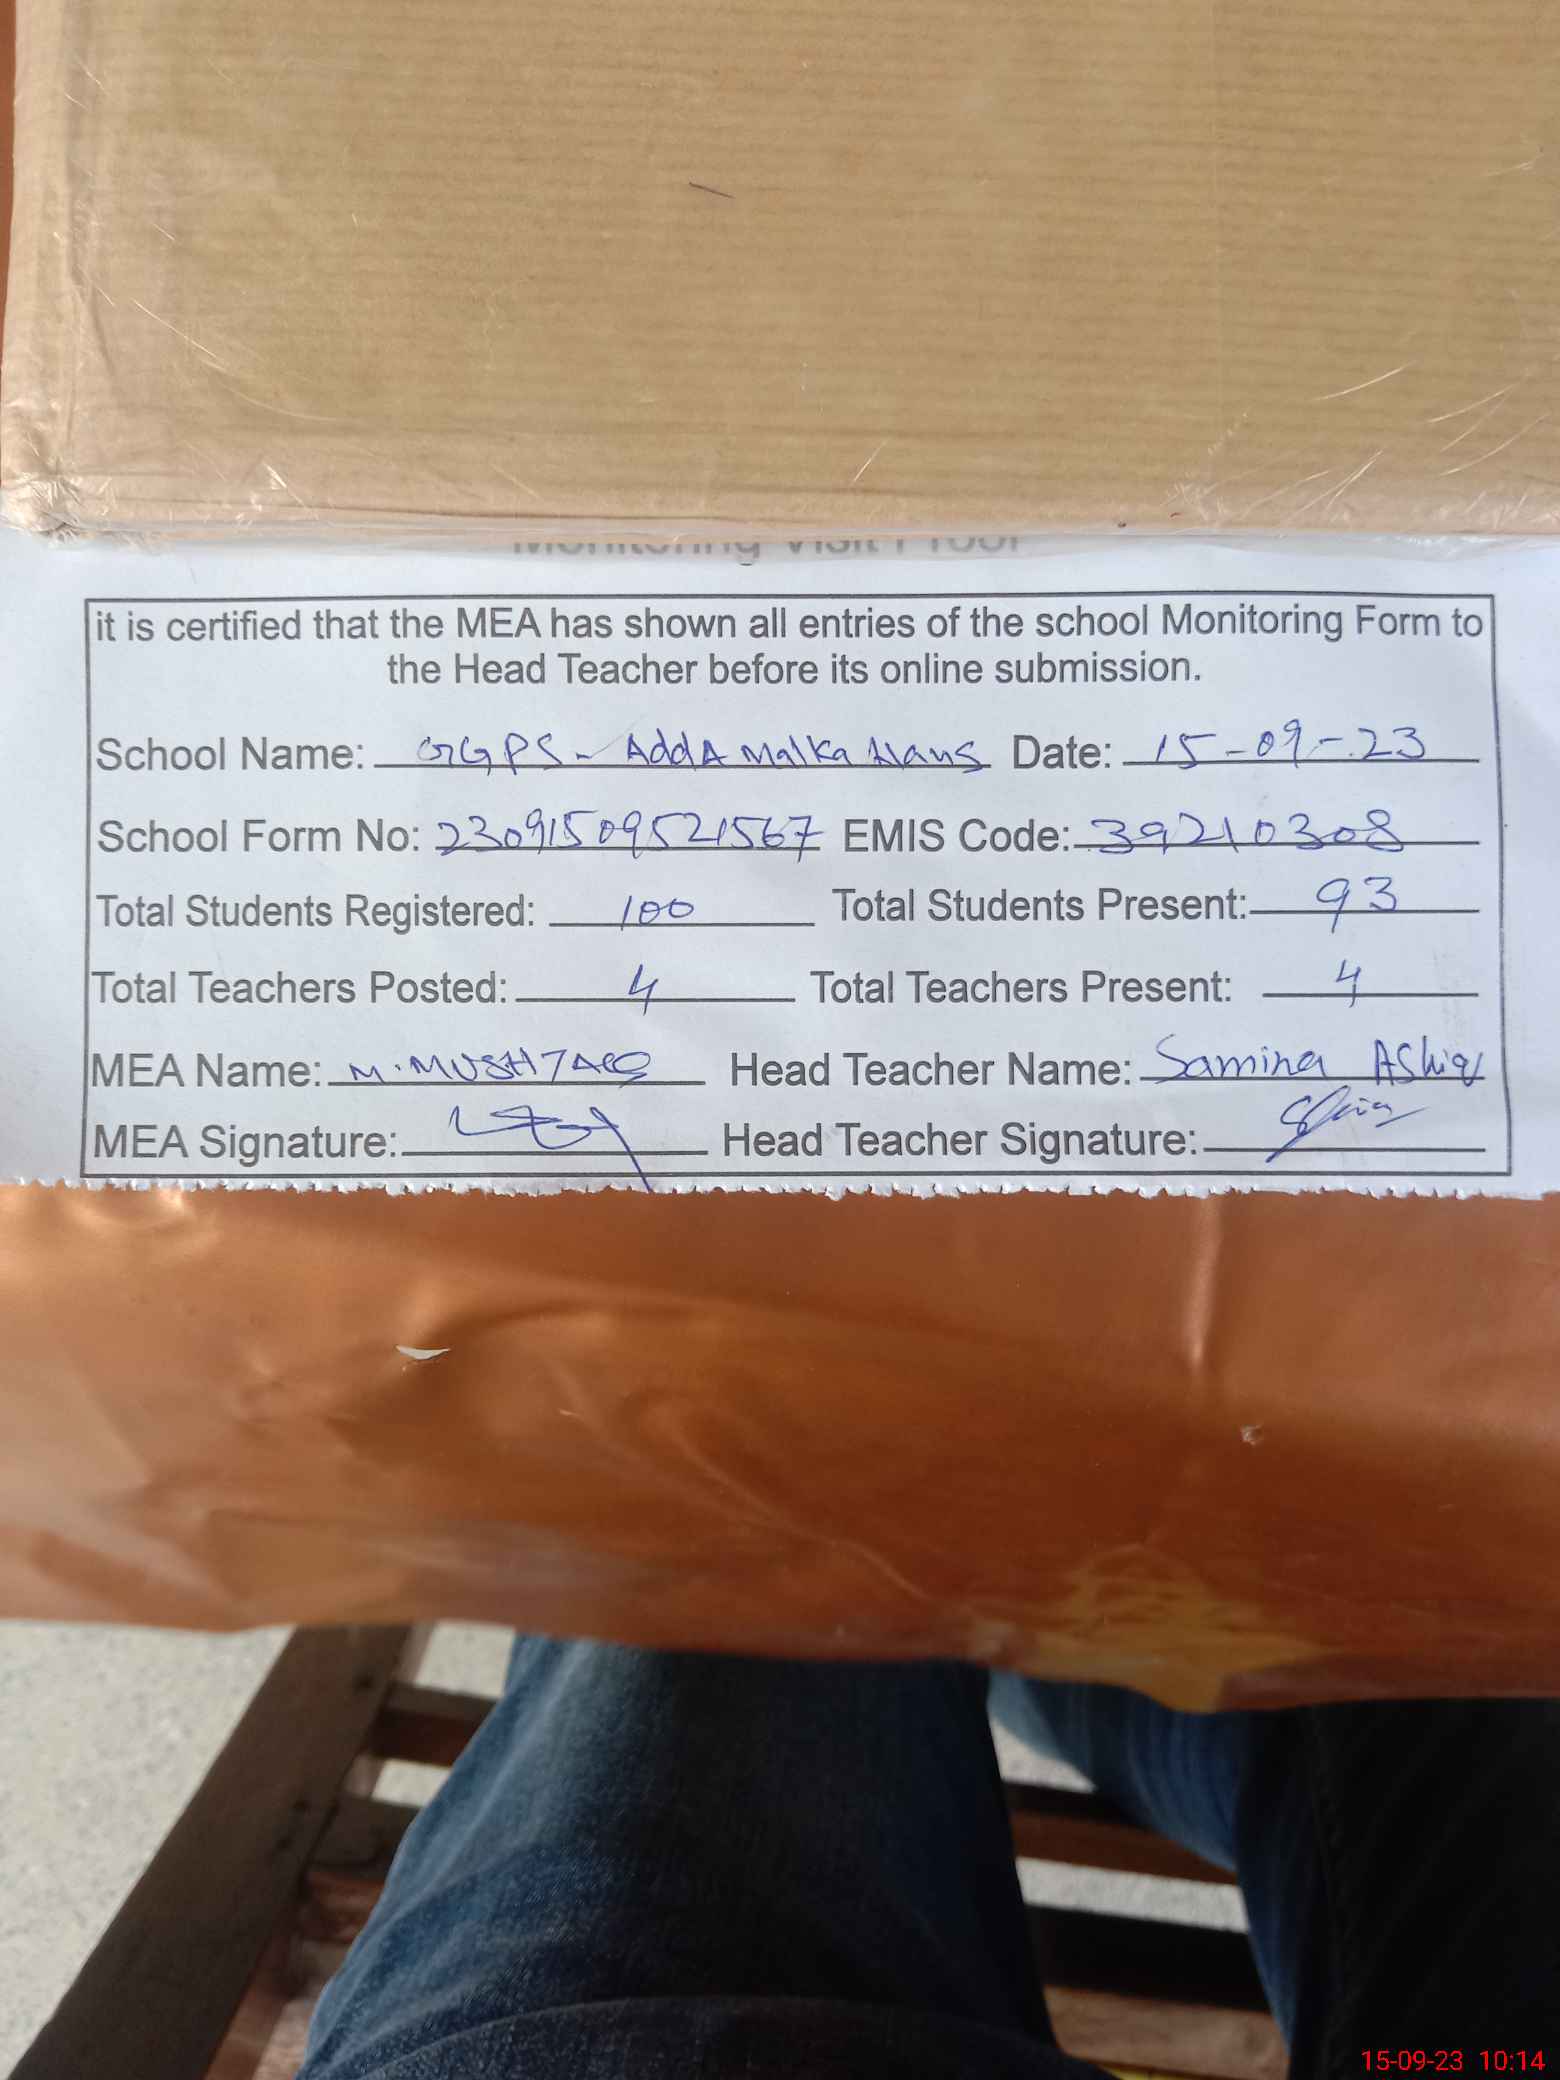 Monitoring Visit Proof
it is certified that the MEA has shown all entries of the school Monitoring Form to
the Head Teacher before its online submission.
School Name: GGPS - Adda Malka Hans Date: 15-09-23
School Form No: 23091509521567 EMIS Code: 39210308
Total Students Registered: 100 Total Students Present: 93
Total Teachers Posted: 4 Total Teachers Present: 4
MEA Name: M. MUSHTAQ Head Teacher Name: Samina AShiq
MEA Signature: Head Teacher Signature:
15-09-23 10:14